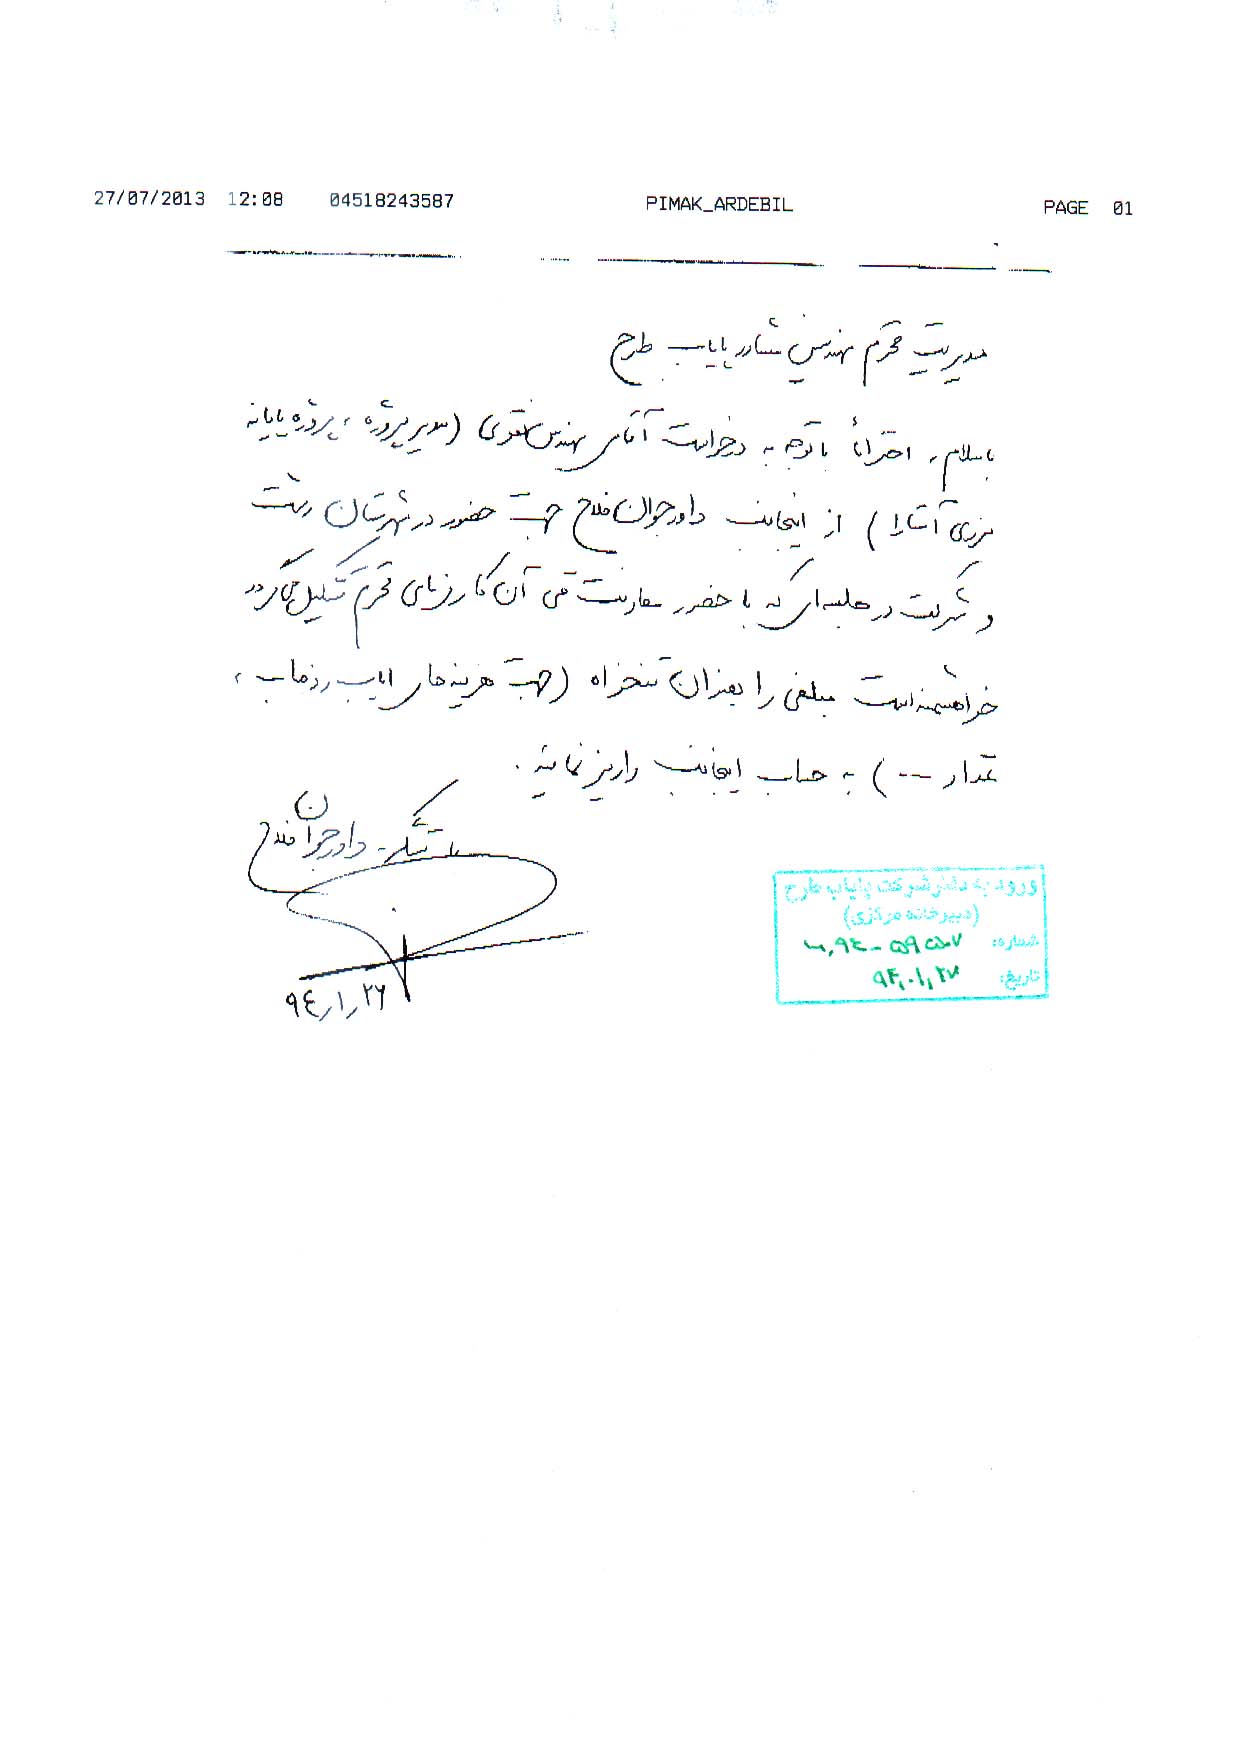 27/07/2013 12:08 04518243587 PIMAK_ARDEBIL PAGE 01
مدیریت محترم مهندسین مشاور پایاب طرح
باسلام، احتراماً باتوجه به درخواست آقای مهندس تقوی (مدیر پروژه، پروژه پایانه
مرزی آستارا) از اینجانب داور جوان فلاح جهت حضور در شهرستان رشت
و شرکت در جلسه‌ای که با حضور معاونت فنی آن کارفرمای محترم تشکیل می‌گردد
خواهشمند است مبلغی را بعنوان تنخواه (جهت هزینه‌های ایاب و ذهاب،
غذا و ---) به حساب اینجانب واریز نمایند.
با تشکر - داور جوان فلاح
۹۴/۱/۲۶
ورود به دفتر شرکت پایاب طرح
(دبیرخانه مرکزی)
شماره:
تاریخ: ۹۴/۰۱/۲۷